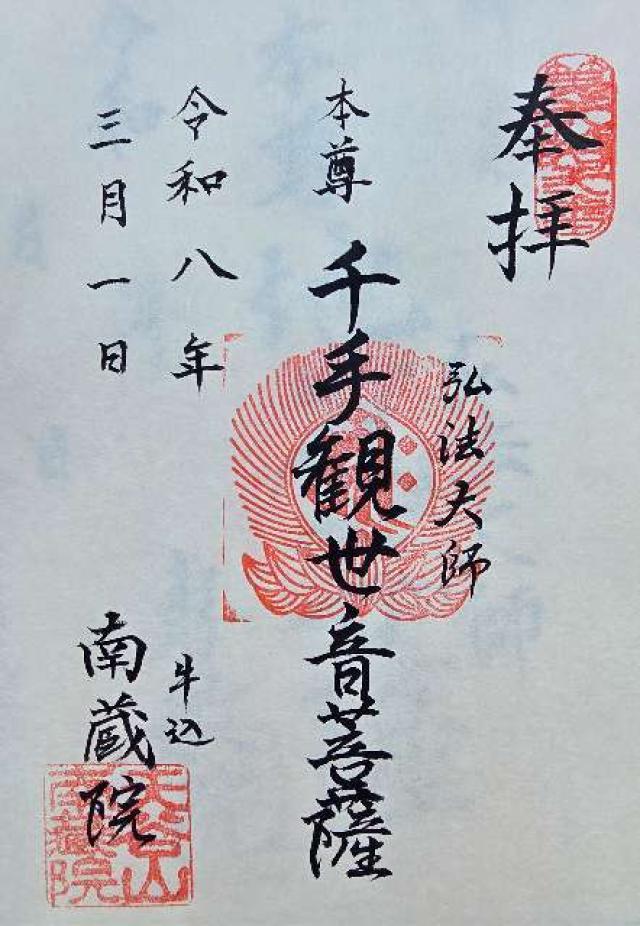 奉拝
弘法大師
本尊
千手観世音菩薩
令和八年
三月一日
牛込
南蔵院